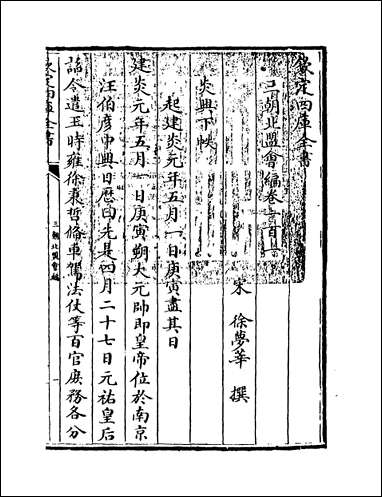 欽定四庫全書
三朝北盟會編卷一百一
宋 徐夢莘 撰
炎興下帙
起建炎元年五月一日庚寅盡其日
建炎元年五月一日庚寅朔大元帥即皇帝位於南京
汪伯彦中興日厯曰先是四月二十七日元祐皇后
詔令遣王時雍徐秉哲備車駕法仗等百官庶務各分
欽定四庫全書
三朝北盟會編